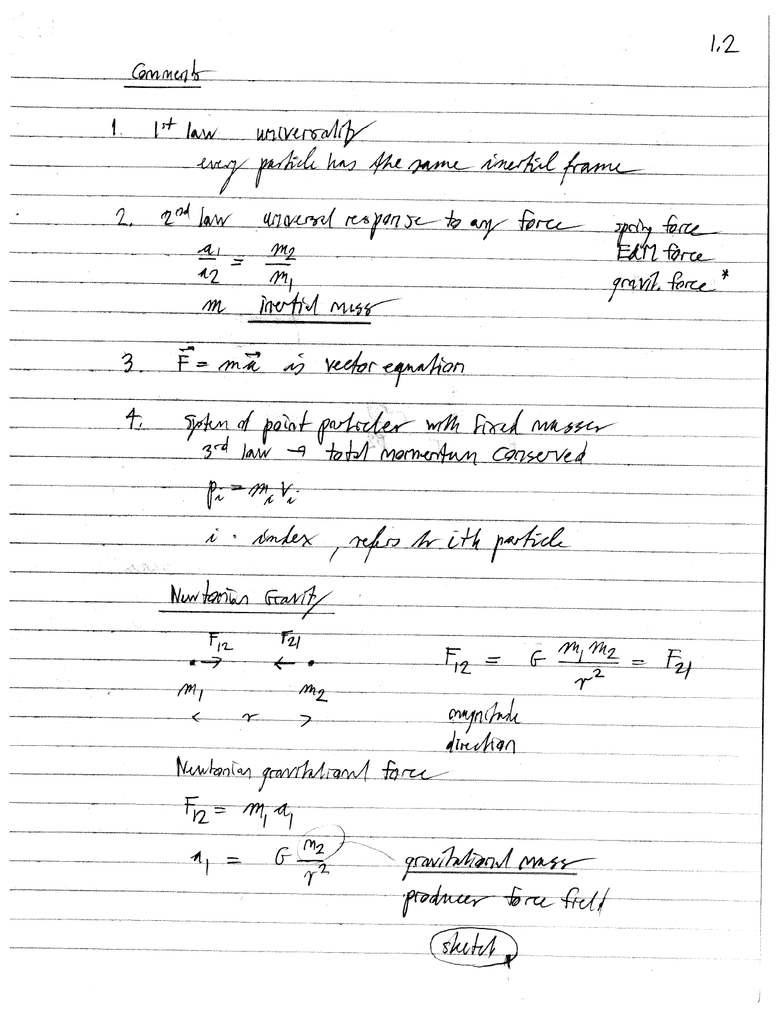 1.2
Comments
1. 1st law universality
every particle has the same inertial frame
2. 2nd law universal response to any force spring force
a1/a2 = m2/m1 E&M force
gravit. force *
m inertial mass
3. F⃗ = ma⃗ is vector equation
4. system of point particles with fixed masses
3rd law → total momentum conserved
pi = mi vi
i : index, refers to ith particle
Newtonian Gravity
F12 F21
F12 = G m1 m2 / r² = F21
m1 m2
< r > magnitude
direction
Newtonian gravitational force
F12 = m1 a1
a1 = G m2 / r² gravitational mass
produces force field
sketch